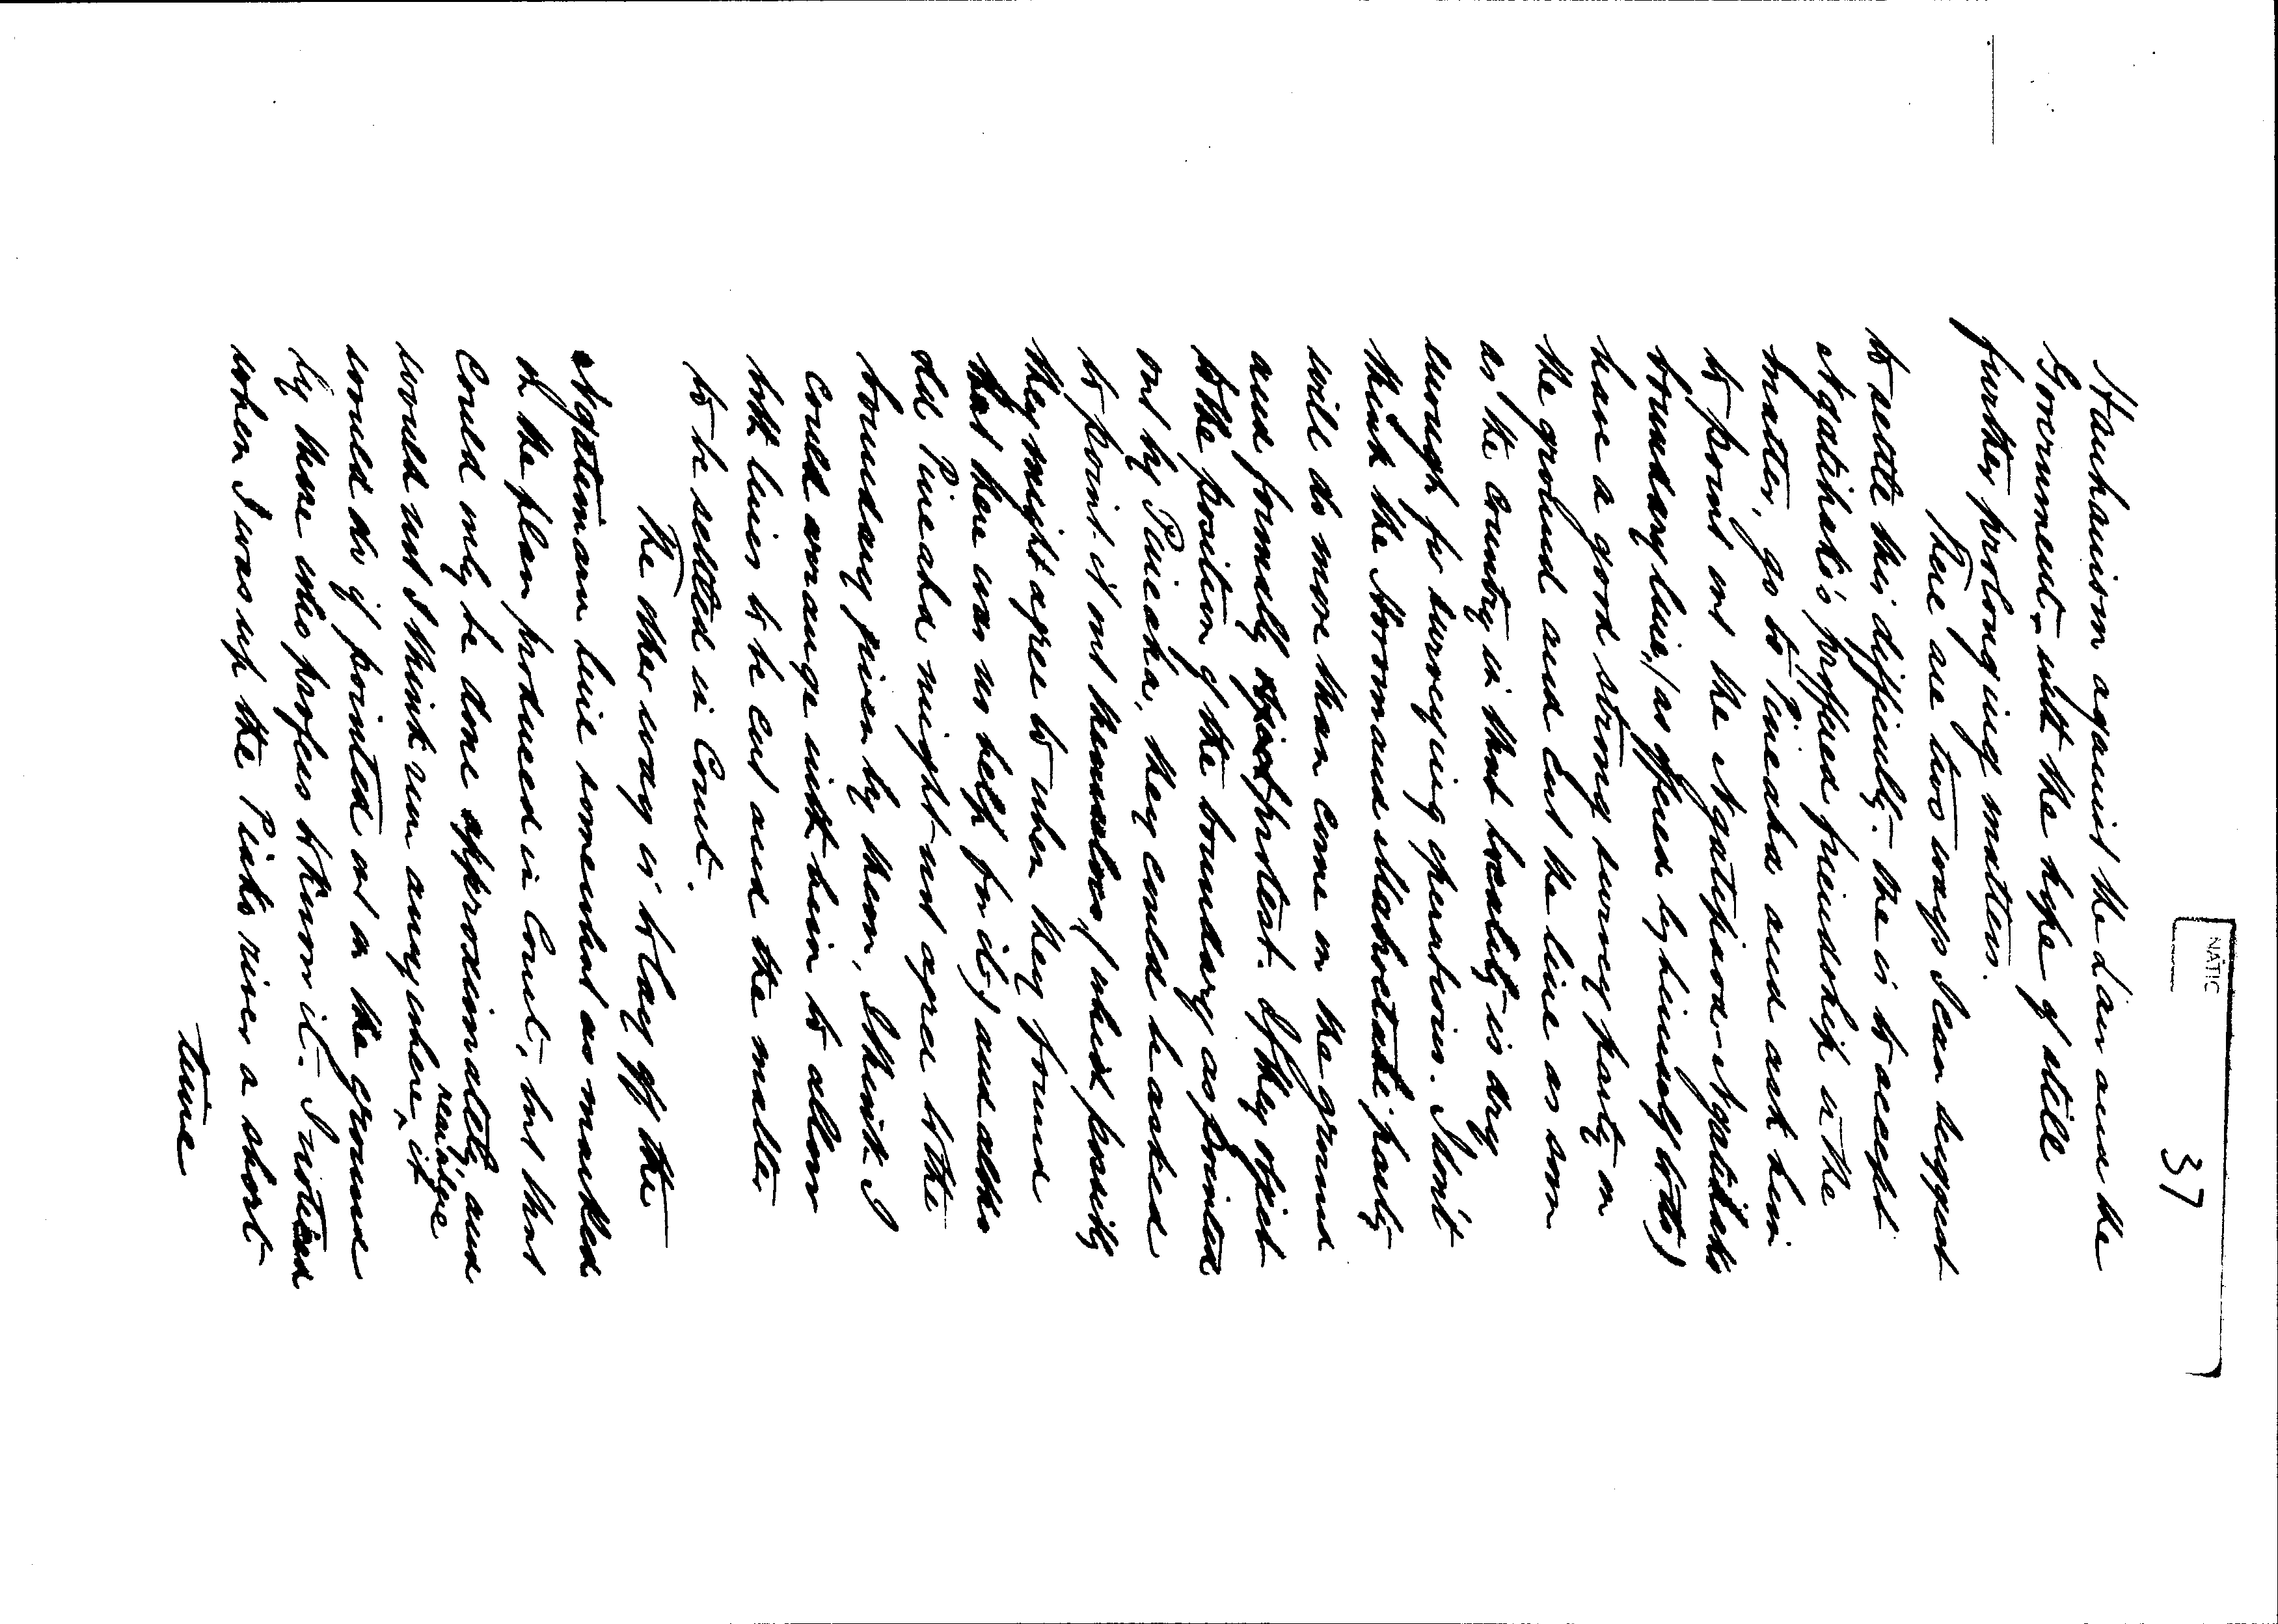 NATIC
37
Hauhauism against the Law and the
Government, with the hope of still
further prolonging matters.
There are two ways I can suggest
to settle this difficulty. One is to accept
Ngatihako's proffered friendship in the
matter, go to Pineaha and ask him
to point out the Ngatipaoa-Ngatihako
boundary line, (as offered by himself to do)
have a good strong survey party on
the ground and cut the line as soon
as the country in that locality is dry
enough for surveying operations. I don't
think the party
will do more than come on the ground
and formally object protest. If they object
to the position of the boundary as pointed
out by Pineaha, they could be asked
to point it out themselves, (which possibly
they might agree to when they found
that there was no help for it,) and altho
old Pineaha might not agree to the
boundary given by them, I think I
could arrange with him to allow
both lines to be cut and the matter
to be settled in Court.
The other way is to lay off the
line somewhat as marked
on the plan produced in Court, but that
could only be done approximately, and
would not I think run anywhere near where it
would do if pointed out on the ground
by those who profess to know it. I noticed
when I was up the Piako river a short
time